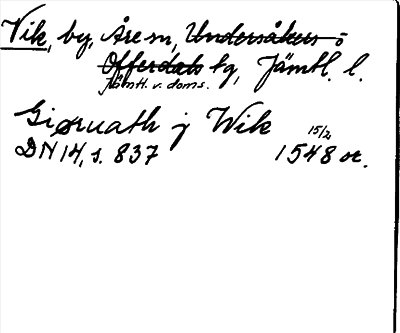 Vik, by, Åre sn, Undersåkers o
Offerdals tg, Jämtl. l.
Jämtl. v. doms.
Giøruath j Wik 15/2
DN 14, s. 837 1548 or.